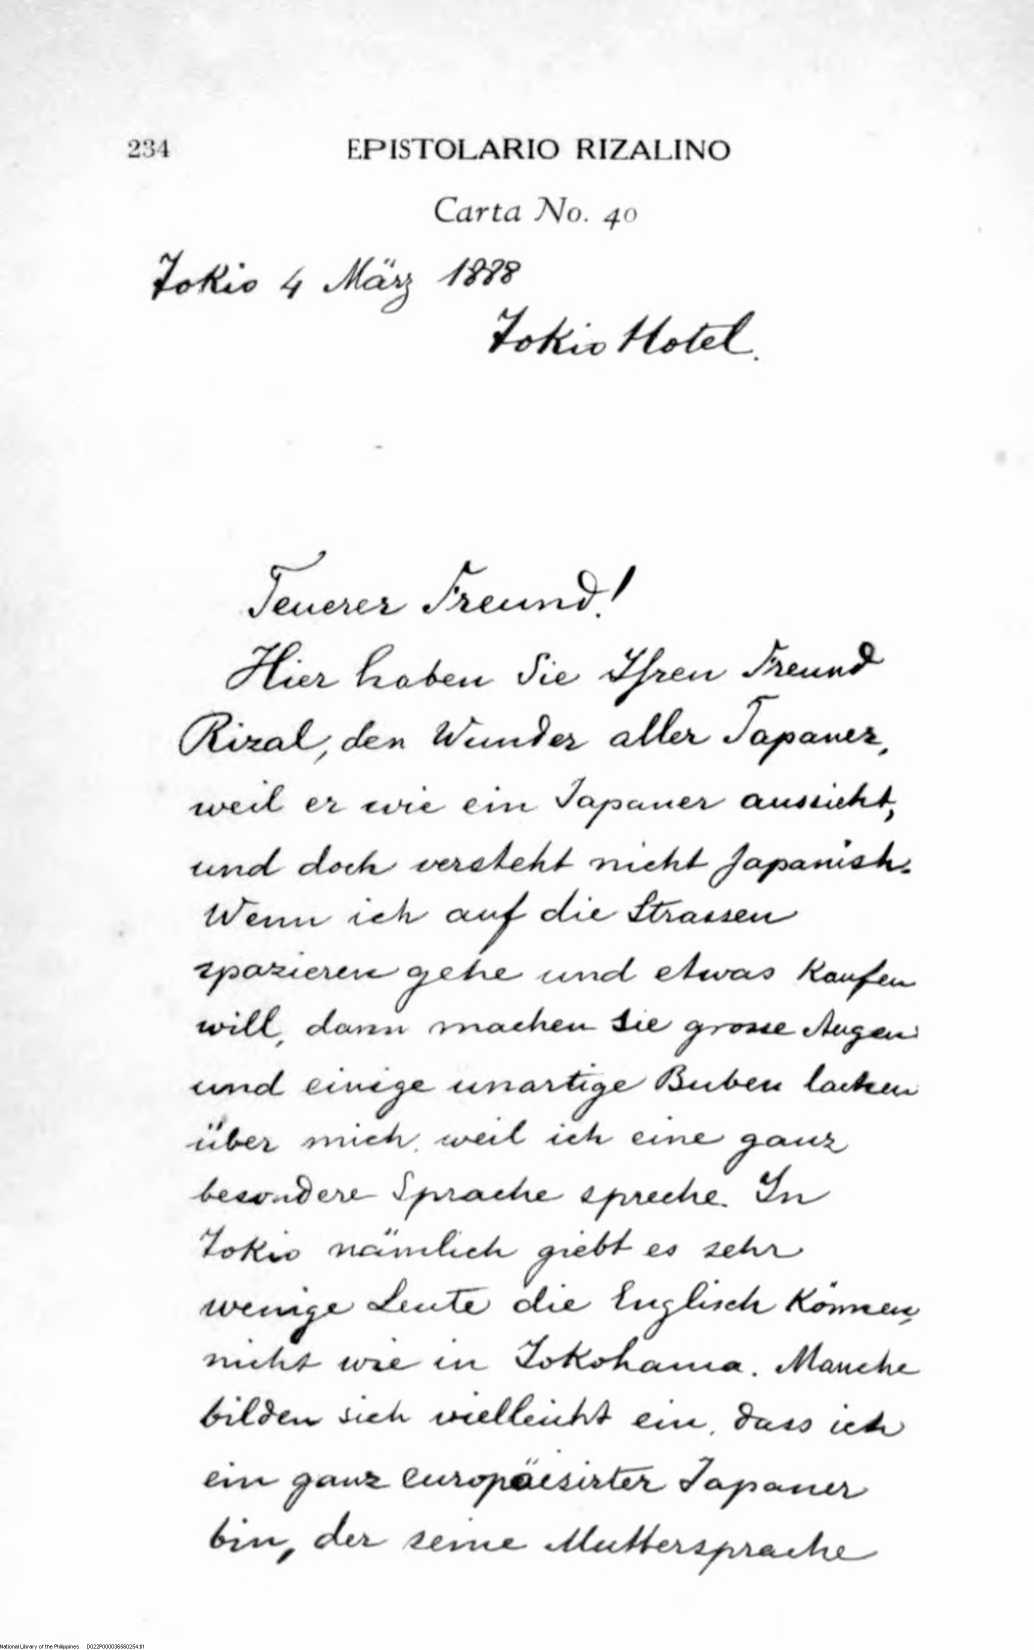 234 EPISTOLARIO RIZALINO
Carta No. 40
Tokio 4 März 1888
Tokio Hotel.
Teuerer Freund!
Hier haben Sie Ihren Freund
Rizal, den Wunder aller Japaner,
weil er wie ein Japaner aussieht,
und doch versteht nicht Japanish.
Wenn ich auf die Strassen
spazieren gehe und etwas kaufen
will, dann machen sie grosse Augen
und einige unartige Buben lachen
über mich, weil ich eine ganz
besondere Sprache spreche. In
Tokio nämlich giebt es sehr
wenige Leute die Englisch können,
nicht wie in Yokohama. Manche
bilden sich vielleicht ein, dass ich
ein ganz europäesirter Japaner
bin, der seine Muttersprache
National Library of the Philippines